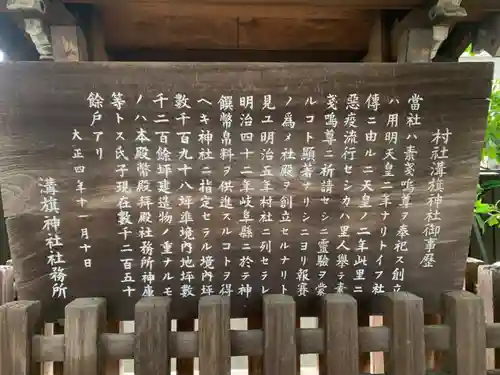 村社溝旗神社御事歴
當社ハ素戔嗚尊ヲ奉祀ス創立
ハ用明天皇二年ナリトイフ社
傳ニ由ルニ天皇ノ二年此里ニ
惡疫流行センカハ里人擧テ素
戔嗚尊ニ祈請セシニ霊驗ヲ蒙
ルコト顯著ナリシニヨリ報賽
ノ爲メ社殿ヲ創立セルナリト
見ユ明治五年村社ニ列セラレ
明治四十二年岐阜縣ニ於テ神
饌幣帛料ヲ供進スルコトヲ得
ヘキ神社ニ指定セラル境内坪
數千百九十八坪準境内地坪數
千二百餘坪建造物ノ重ナルモ
ノハ本殿幣殿拜殿社務所神庫
等トス氏子現在數千二百五十
餘戸アリ
大正四年十一月十日
溝旗神社社務所